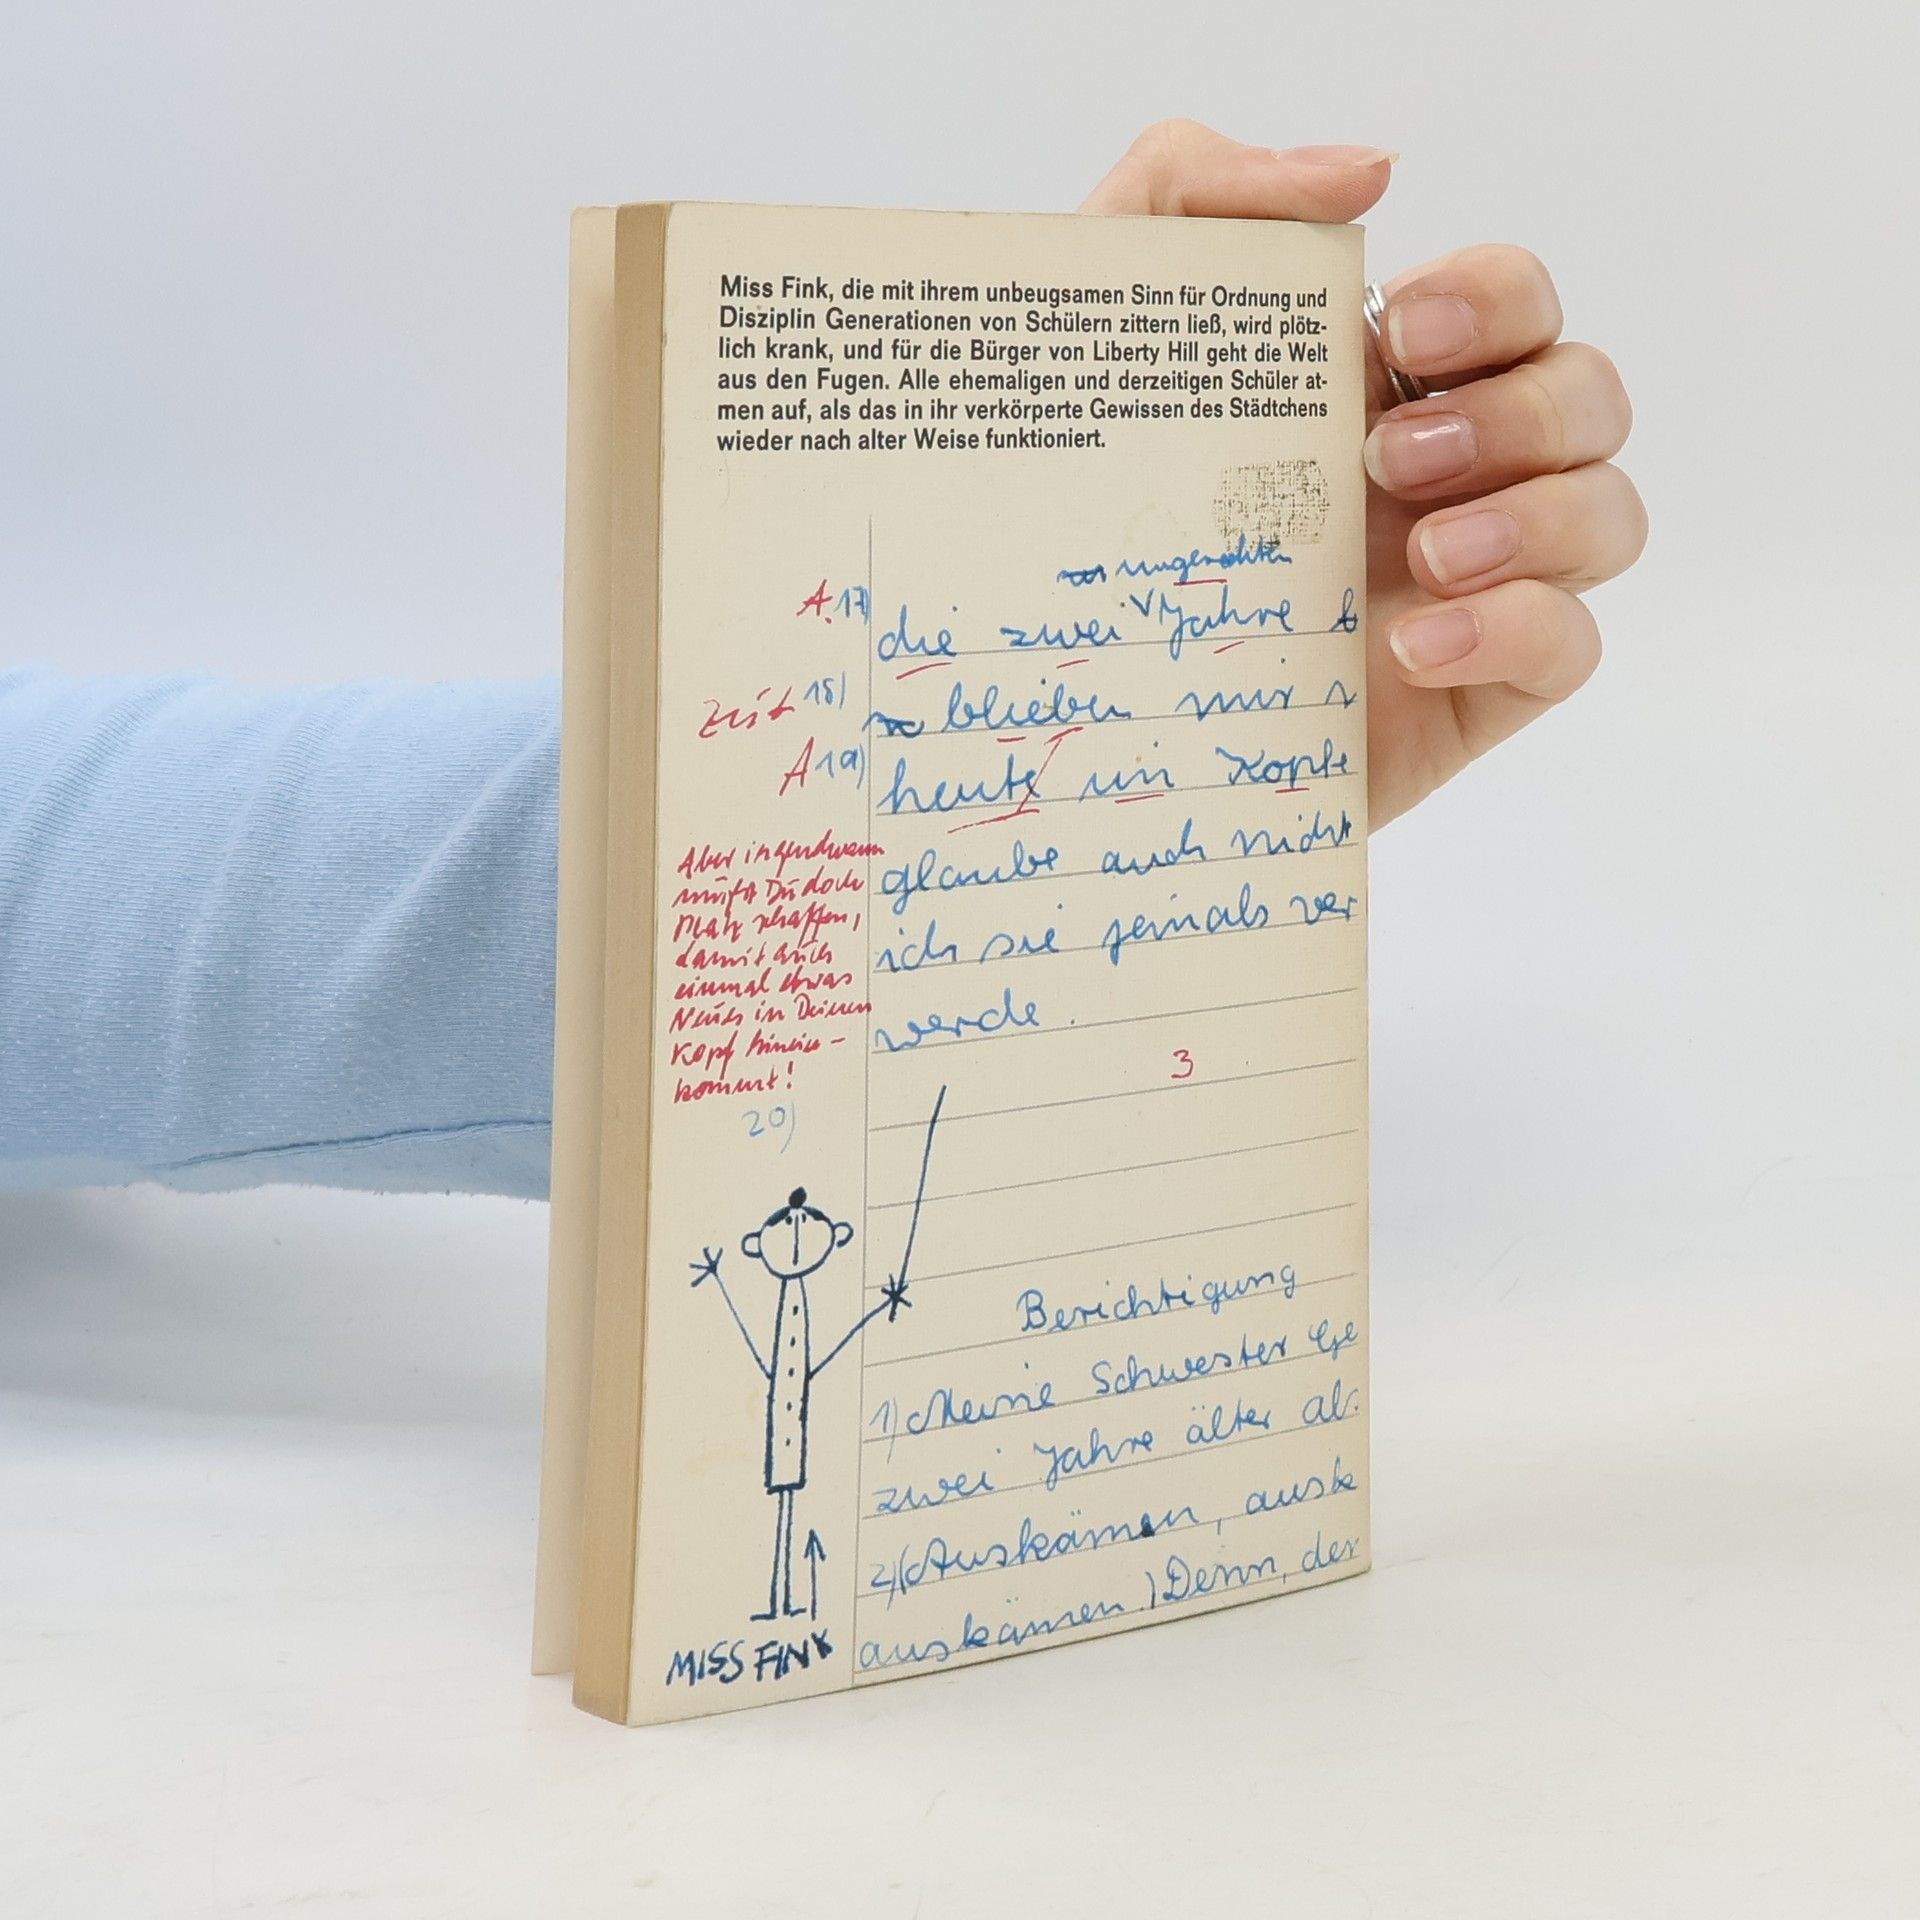 Miss Fink, die mit ihrem unbeugsamen Sinn für Ordnung und
Disziplin Generationen von Schülern zittern ließ, wird plötz-
lich krank, und für die Bürger von Liberty Hill geht die Welt
aus den Fugen. Alle ehemaligen und derzeitigen Schüler at-
men auf, als das in ihr verkörperte Gewissen des Städtchens
wieder nach alter Weise funktioniert.
A. 17)
die zwei Jahre
18)
blieben mir
A 19)
heute im Kopfe
glaube auch nicht
ich sie jemals ver
werde.
Aber irgendwann
mußt Du doch
Platz schaffen,
damit auch
einmal etwas
Neues in Deinen
Kopf hinein-
kommt!
20)
3
Berichtigung
1) Meine Schwester Ge
zwei Jahre älter al
2) (Auskämen, ausk
auskämen.) Denn, der
MISS FINK